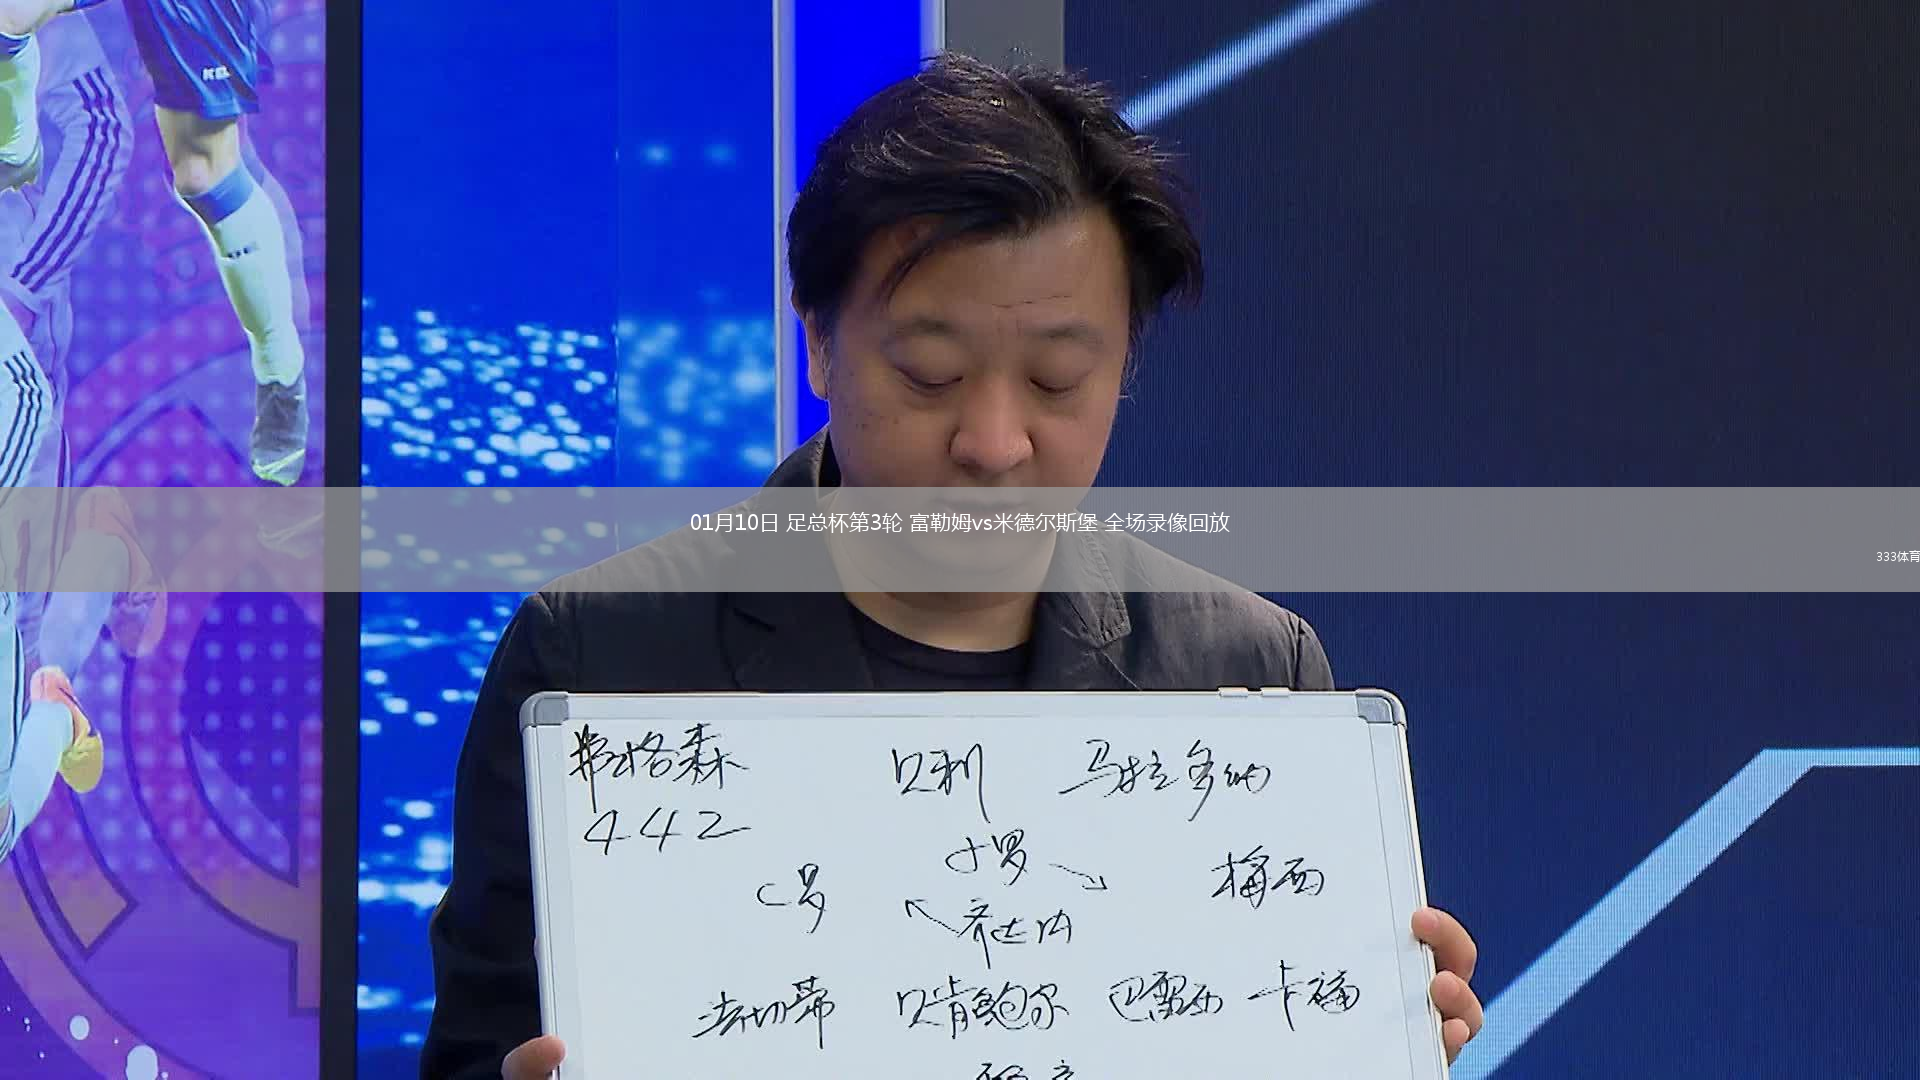 01月10日 足总杯第3轮 富勒姆vs米德尔斯堡 全场录像回放
333体育
弗格森 贝利 马拉多纳
442
小罗
C罗 梅西
齐达内
法切蒂 贝肯鲍尔 巴雷西 卡福